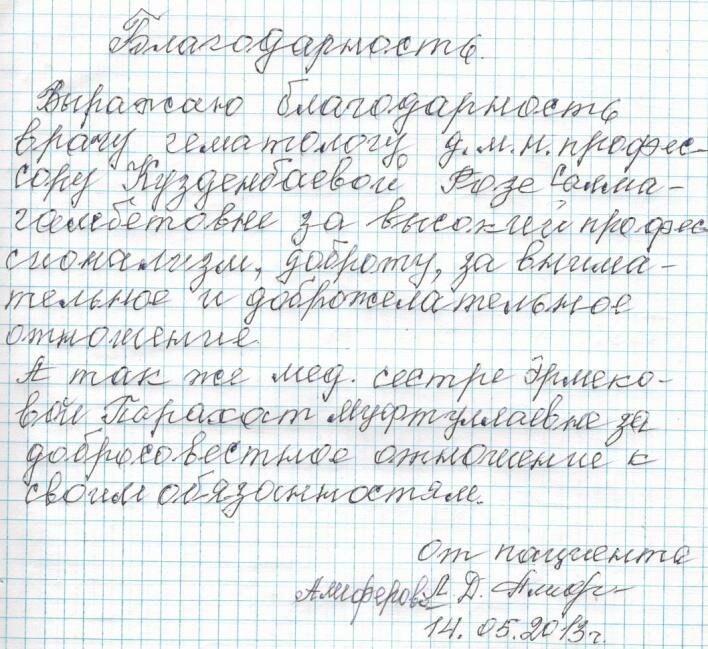 Благодарность.
Выражаю благодарность
врачу гематологу д.м.н. профес-
сору Кузденбаевой Розе Салма-
гамбетовне за высокий профес
сионализм, доброту, за внима-
тельное и доброжелательное
отношение.
А так же мед. сестре Эрмеко-
вой Парахат Муфтуллаевне за
добросовестное отношение к
своим обязанностям.
От пациента
Л. Д.
14.05.2013г.